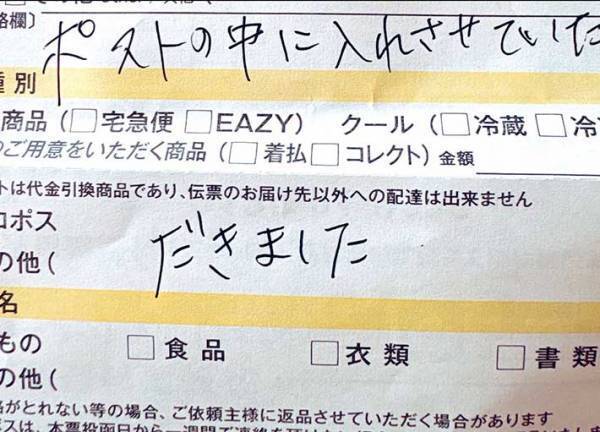 絡欄)
ポストの中に入れさせていた
種別
商品 (□宅急便 □EAZY) クール (□冷蔵 □冷
のご用意をいただく商品 (□着払□コレクト) 金額
トは代金引換商品であり、伝票のお届け先以外への配達は出来ません
コポス
の他 (
だきました
名
もの □食品 □衣類 □書類
の他 (
絡がとれない等の場合、ご依頼主様に返品させていただく場合があります